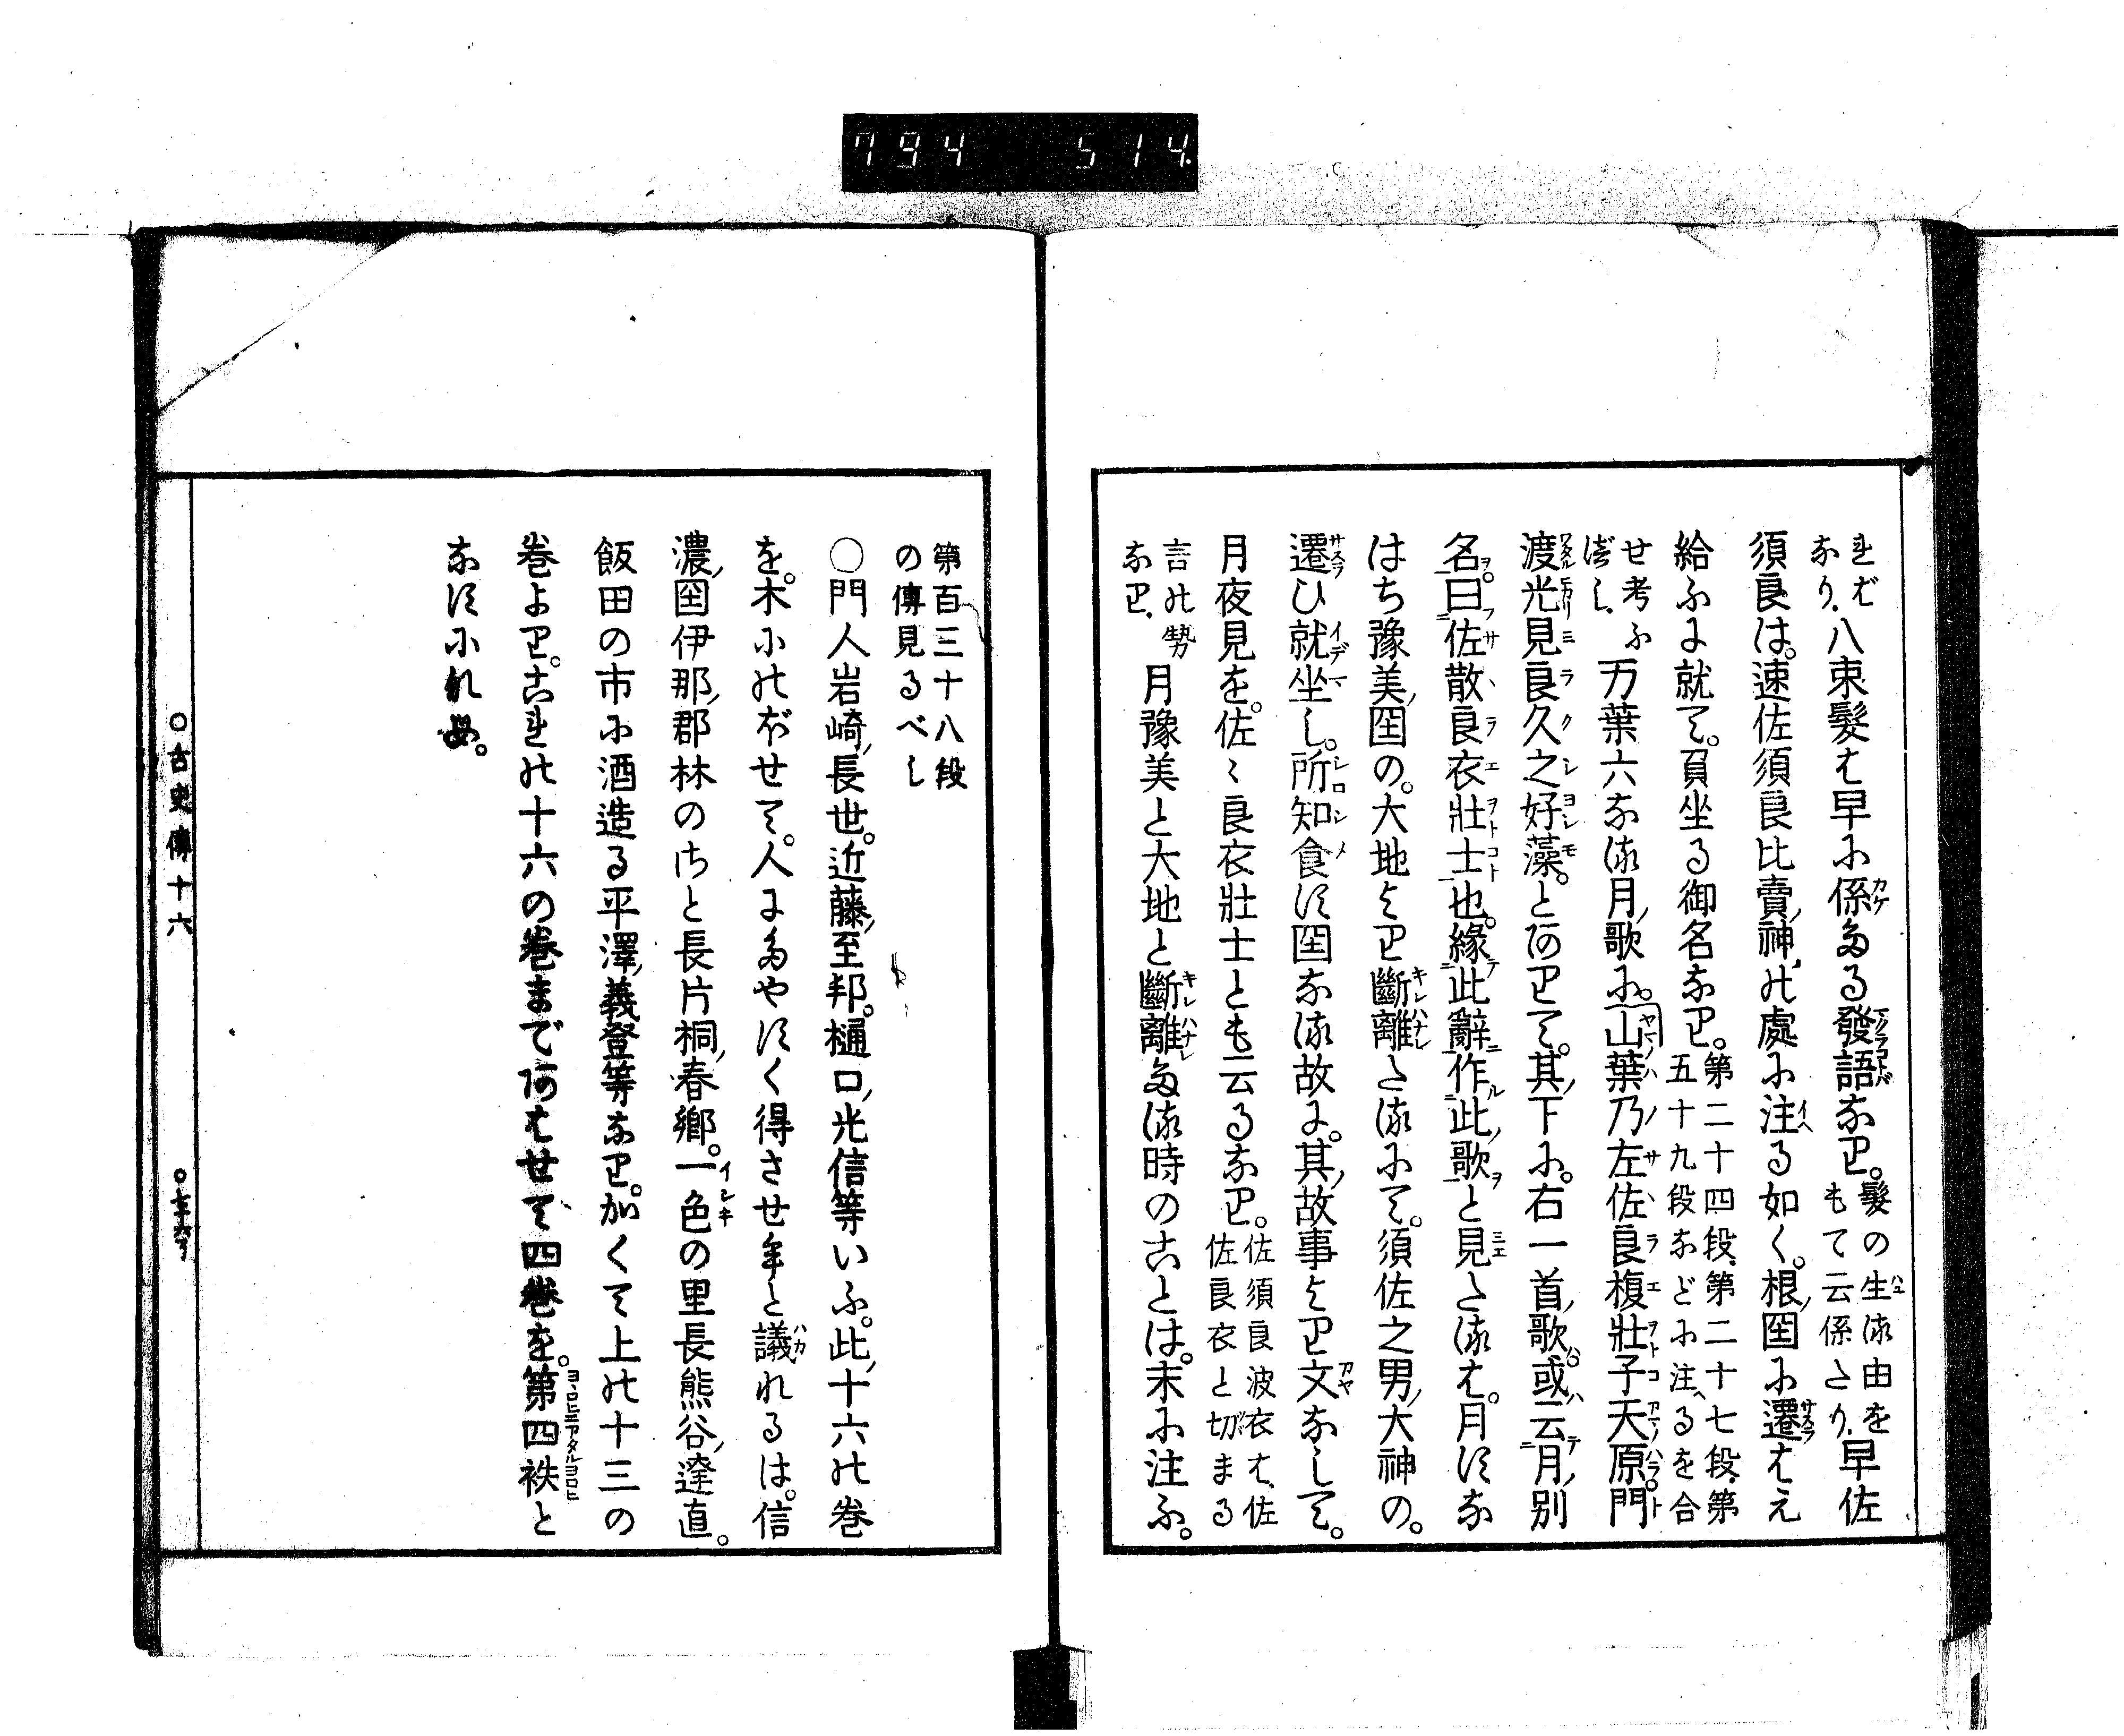 794 514
れば
なり、八束髮は早に係たる發語なり。髮の生る由を
もて云係たり、早佐
須良は。速佐須良比賣ノ神の處に注る如く。根ノ国に遷はえ
給ふに就て。負坐る御名なり。第二十四段、第二十七段、第
五十九段などに注るを合
せ考ふ
べし、万葉六なる月ノ歌に。山葉乃左佐良榎壯子天原門
渡光見良久之好藻。とありて。其ノ下に。右一首ノ歌或云月ノ別
名。曰佐散良衣壯士也。緣此辭作此ノ歌と見たるは。月すな
はち豫美ノ国の。大地より斷離たるにて。須佐之男ノ大神の。
遷ひ就坐し。所知食す国なる故に。其ノ故事より文なして。
月夜見を。佐〻良衣壯士とも云るなり。佐須良波衣は、佐
佐良衣と切まる
言の勢
なり、月豫美と大地と斷離たる時のことは。末に注ふ。
第百三十八段
の傳見るべし
○門人岩崎ノ長世。近藤ノ至邦。樋口ノ光信等いふ。此ノ十六の巻
を。木にのぼせて。人にたやすく得させむと議れるは。信
濃ノ国伊那ノ郡林のさと長片桐ノ春鄉。一色の里長熊谷ノ達直。
飯田の市に酒造る平澤ノ義登等なり。かくて上の十三の
巻より。これの十六の巻まであはせて四巻を。第四袟と
なすになむ。
○古史傳十六